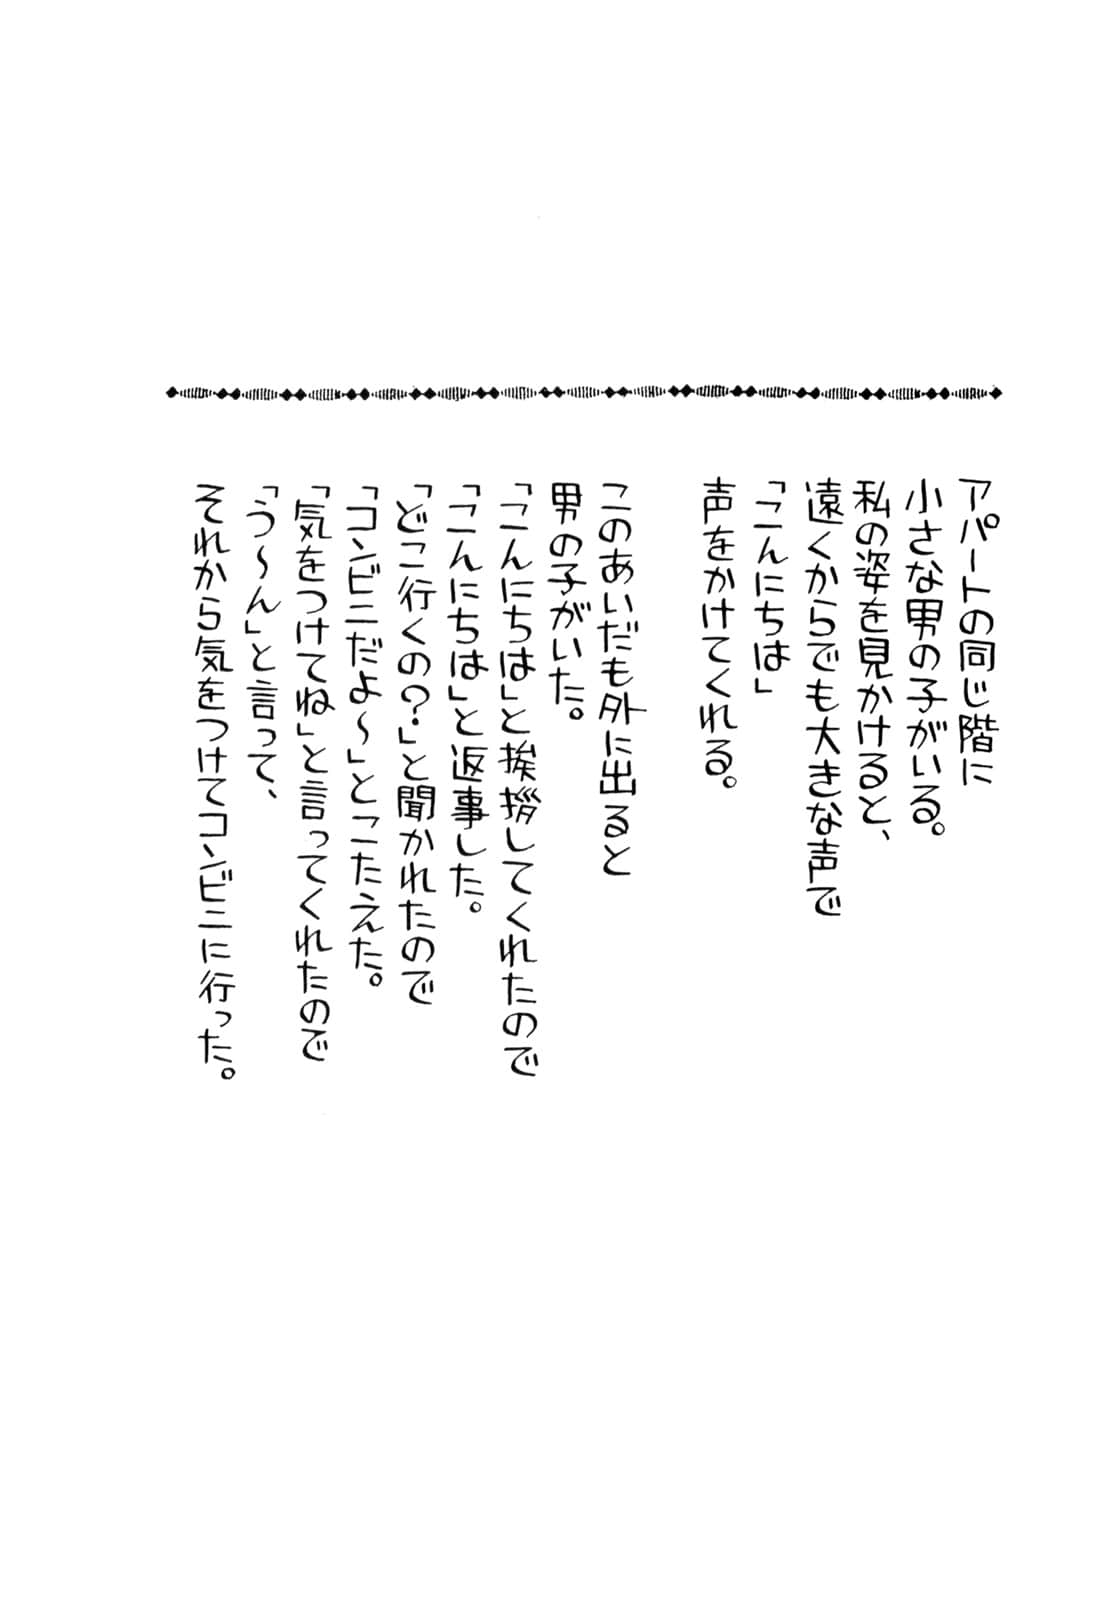 アパートの同じ階に
小さな男の子がいる。
私の姿を見かけると、
遠くからでも大きな声で
「こんにちは」
声をかけてくれる。
このあいだも外に出ると
男の子がいた。
「こんにちは」と挨拶してくれたので
「こんにちは」と返事した。
「どこ行くの？」と聞かれたので
「コンビニだよ～」とこたえた。
「気をつけてね」と言ってくれたので
「う～ん」と言って、
それから気をつけてコンビニに行った。